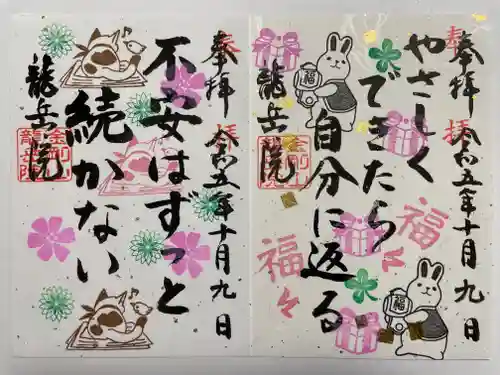 奉拝
令和五年十月九日
やさしく
できたら
自分に返る
龍岳院
福
福
福々
福々
奉拝
令和五年十月九日
不安はずっと
続かない
龍岳院